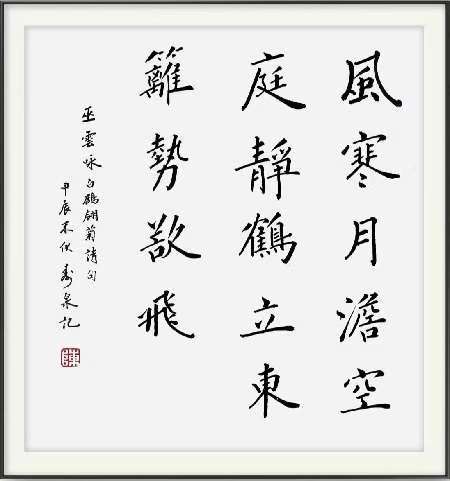 風寒月澹空
庭靜鶴立東
籬勢欲飛
巫雲咏白鶴翎菊詩句
甲辰末伏壽泉記